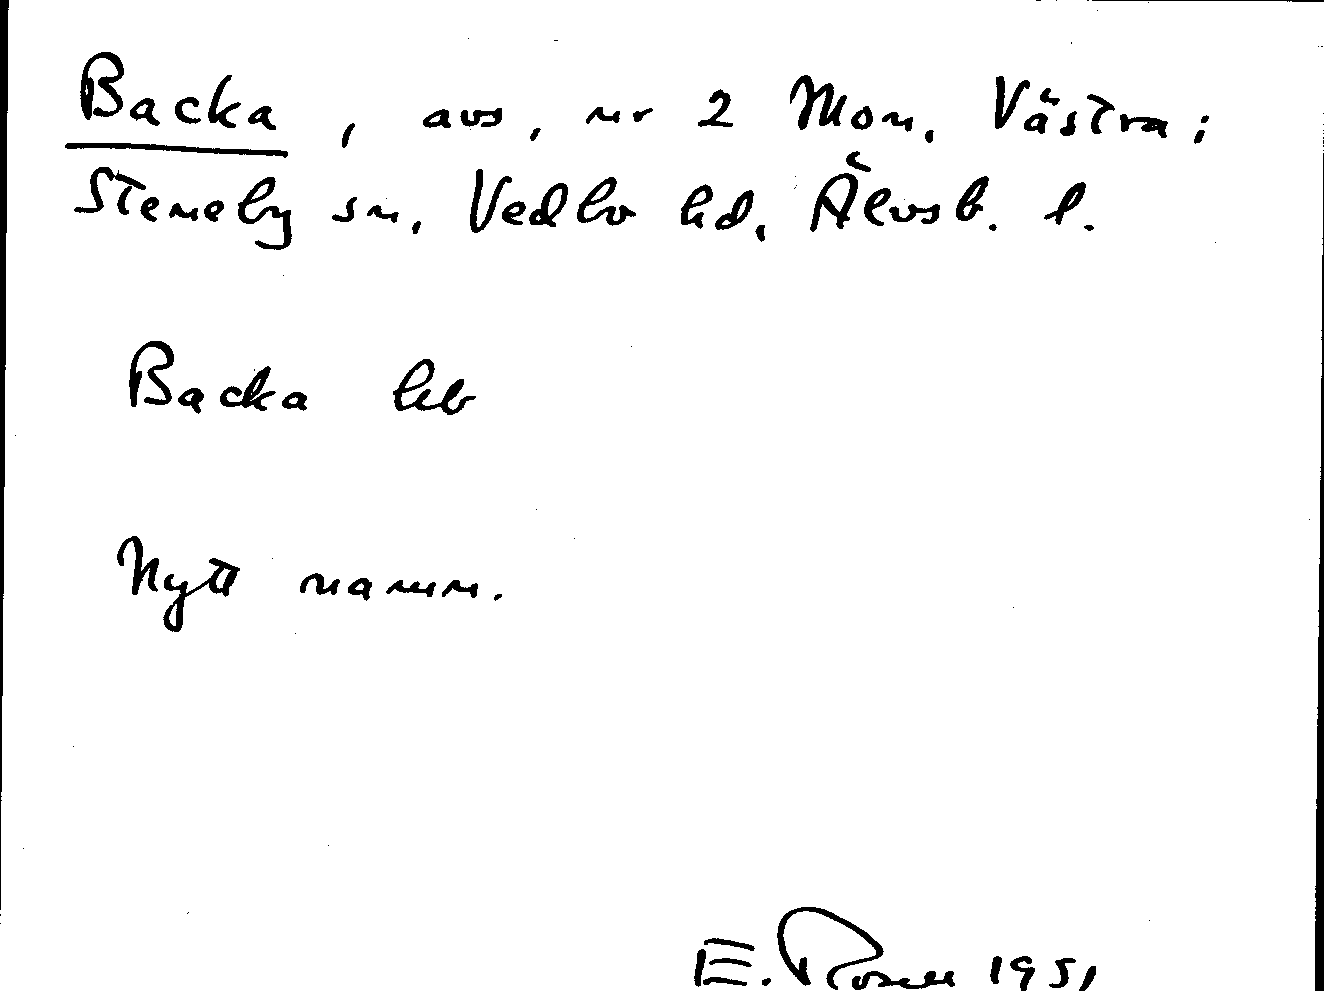 Backa, avs, nr 2 Mon, Västra i
Steneby sn, Vedbo hd, Älvsb. l.
Backa
Nytt namn.
E. Rosell 1951